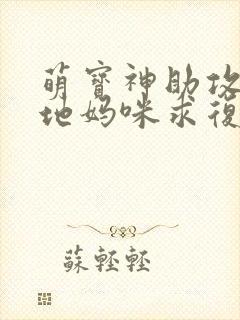 萌寶神助攻
地媽咪求復
蘇輕輕